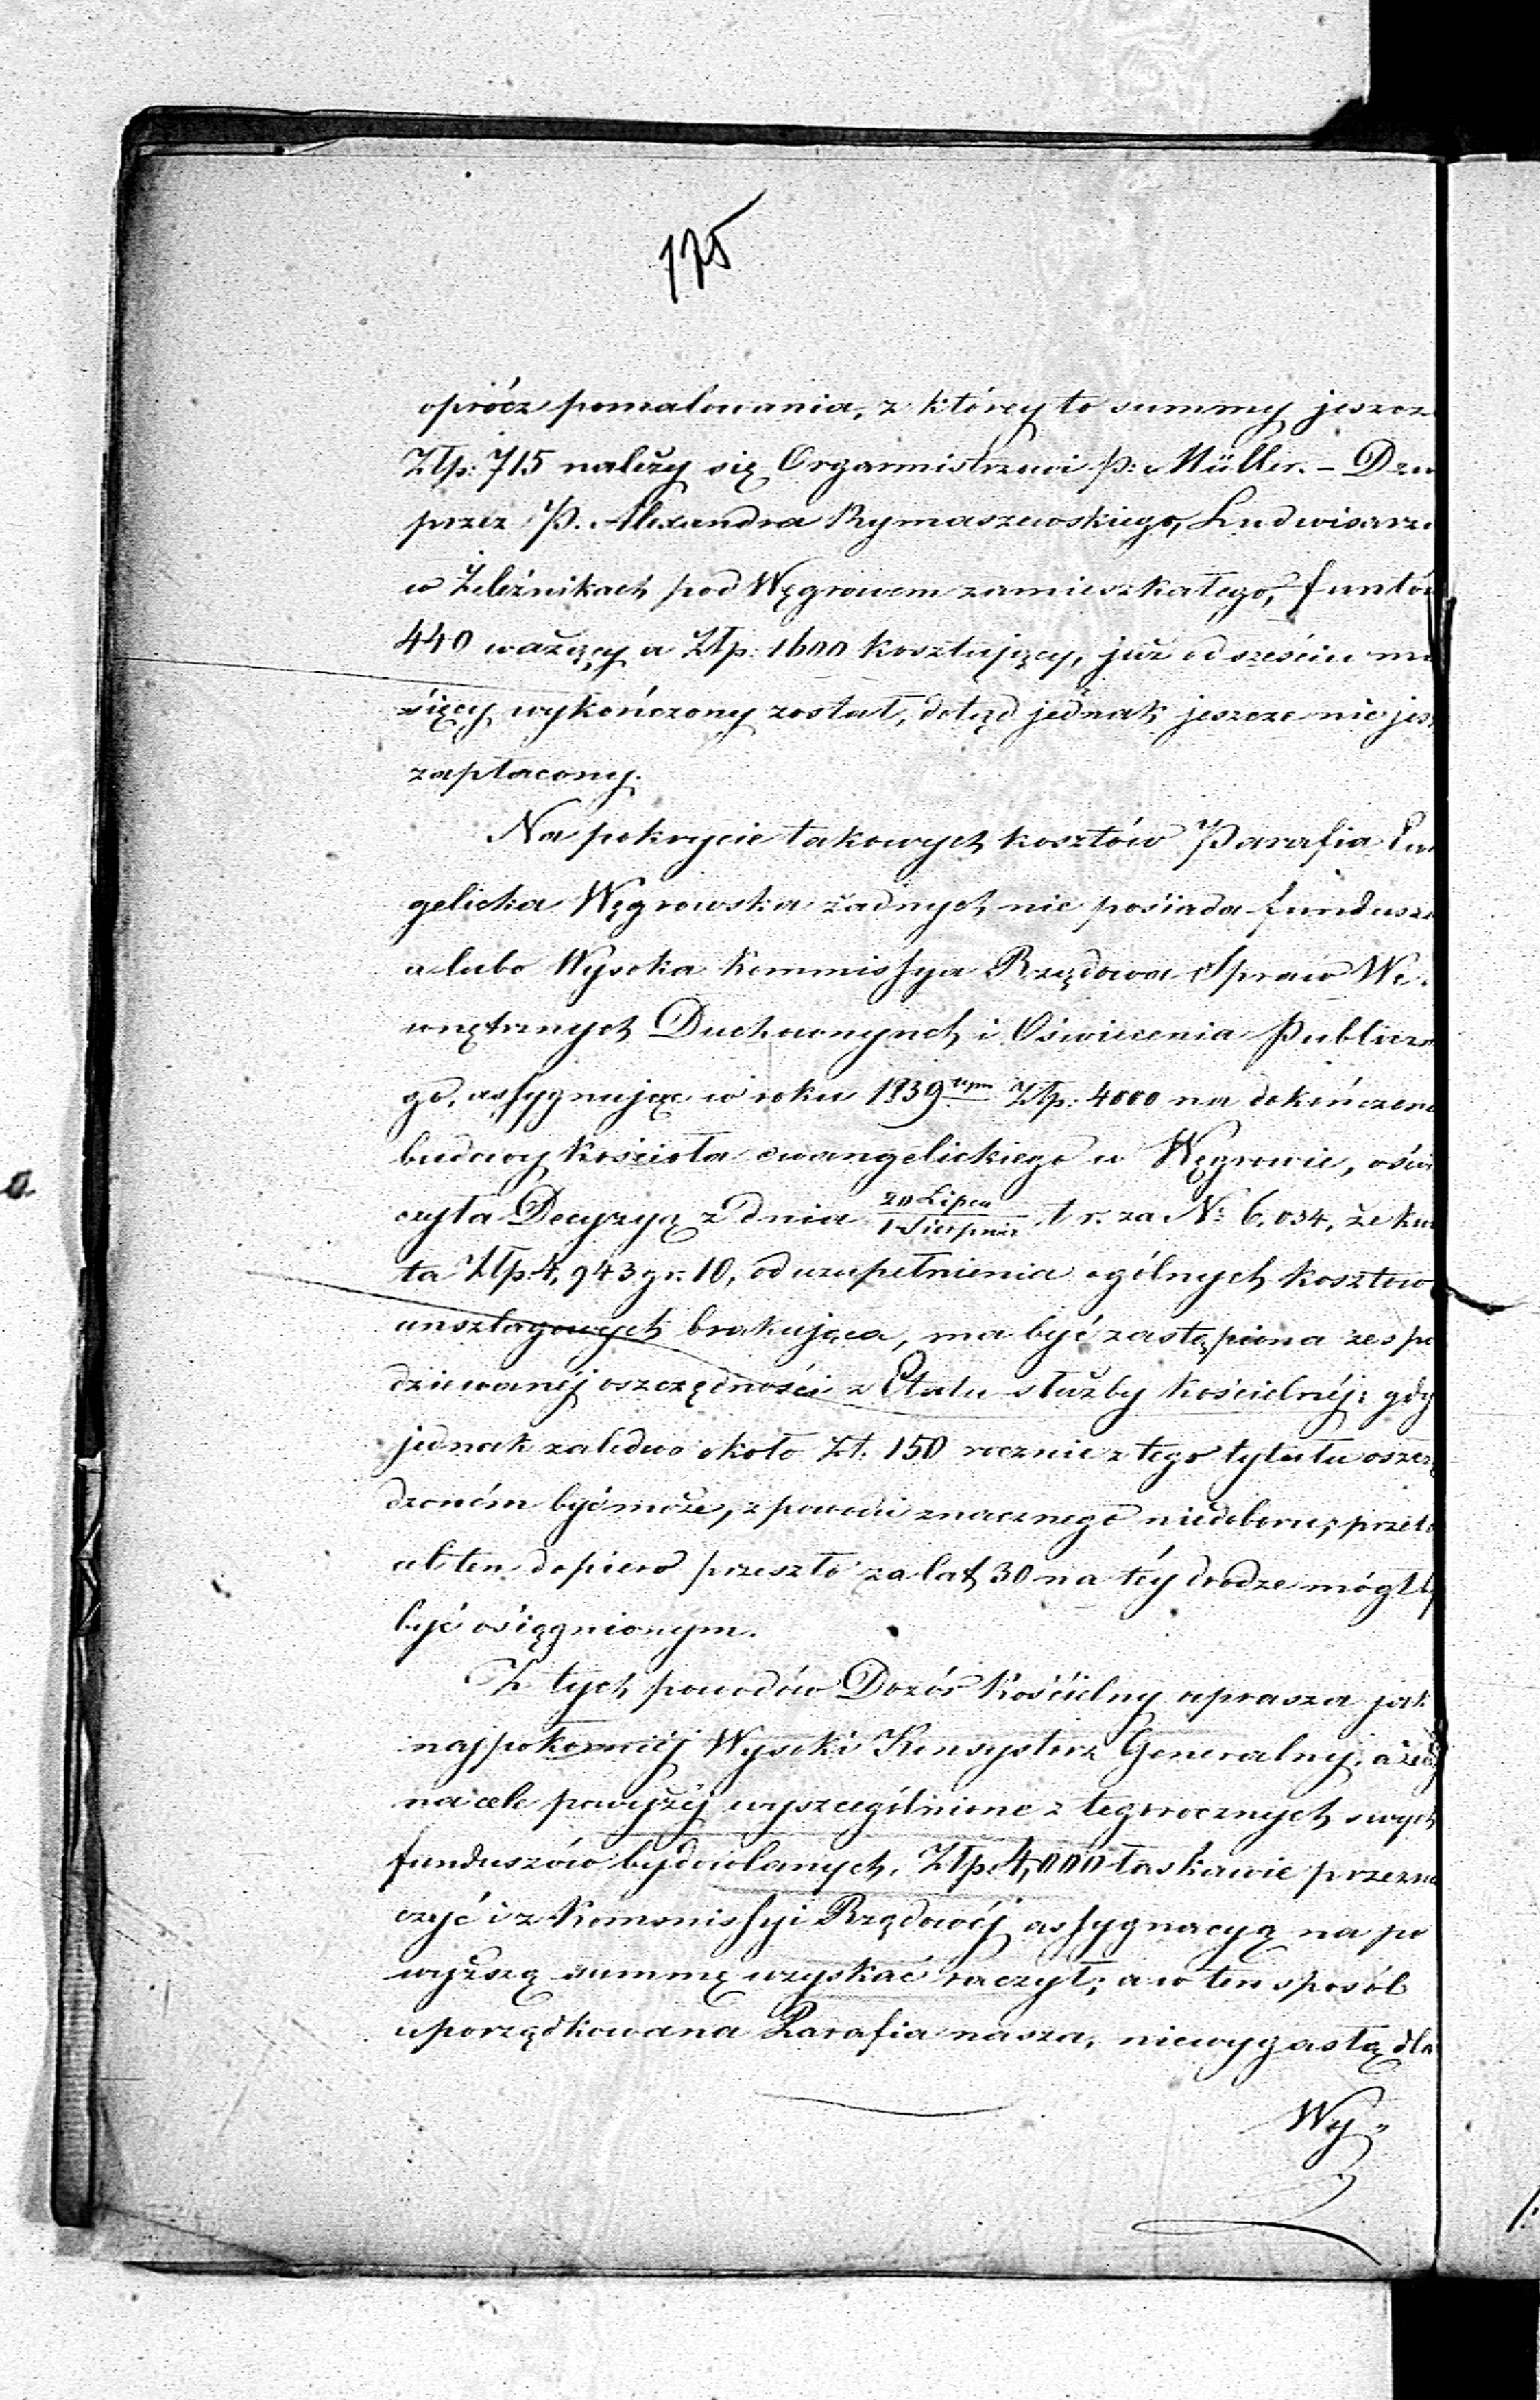 175
oprócz pomalowania, z którey to summy jeszcz
Ztp: 715 należy się Orgarmistrzowi P: Müller. – Dzw
przez P. Alexandra Rymaszewskiego, Ludwisarza
w Żeleźnikach pod Węgrowem zamieszkałego, funtów
440 ważący a Złp: 1600 kosztujący, już od sześciu mie
sięcy wykończony został, dotąd jednak jeszcze nie jes
zapłacony.
Na pokrycie takowych kosztów Parafia Ewa
gelicka Węgrowska żadnych nie posiada fundusz
a lubo Wysoka Kommissya Rządowa Spraw We-
wnętrznych Duchownynch i Oświecenia Publiczn
go, assygnując w roku 1839tym Złp: 4000 na dokończeni
budowy kościoła ewangelickiego w Węgrowie, oświ
czyła Decyzyą z dnia 20 Lipca / 1 Sierpnia t. r. za No 6,034, że kwo
ta Złp: 4,943 gr. 10, od uzupełnienia ogólnych kosztów
anszlagowych brakująca, ma być zastąpiona ze spo
dziewanéj oszczędności z Etatu służby kościelnéj; gdy
jednak zaledwo około Zł. 150 rocznie z tego tytułu oszczę
dzoném być może, z powodu znacznego niedoboru; przeto
ab ten dopiero przeszło za lat 30 na téy drodze mógłb
być osiągnionym.
Z tych powodów Dozór Kościelny uprasza jak
najpokorniéj Wysoki Konsystorz Generalny, ażeby
na cele powyżéj wyszczególnione z tegorocznych swych
funduszów bydowlanych, Złp. 4,000 łaskawie przezna
czyć i z Kommissyi Rządowéj assygnacyą na po
wyższą summę wzyskać raczył; a w ten sposób
uporządkowana Parafia nasza, niewygasłą dla
Wy-